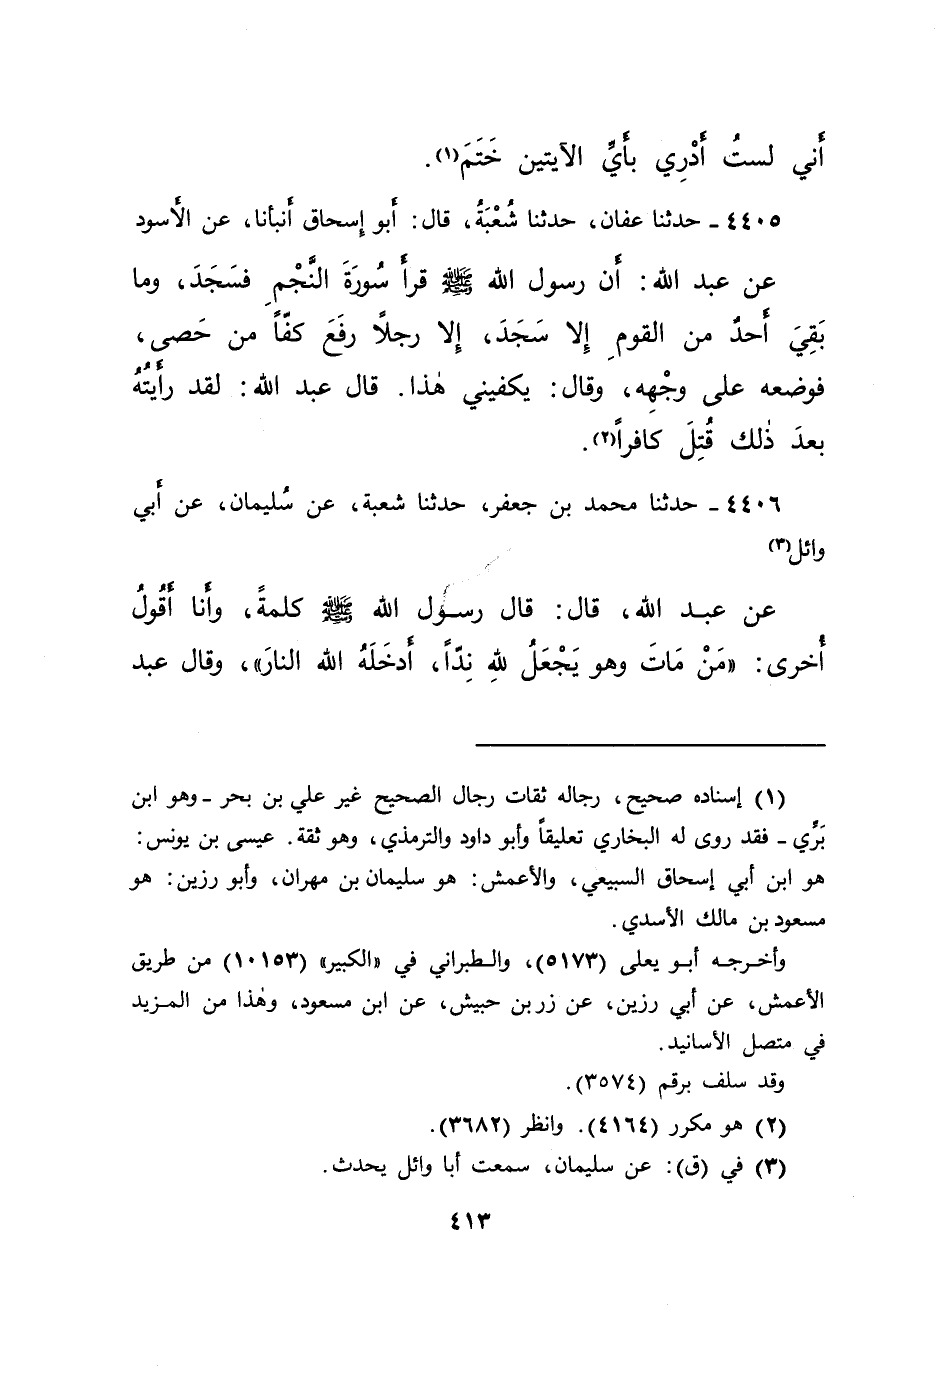 أَني لستُ أَدْرِي بأَيِّ الآيتين خَتَمَ(١).
٤٤٠٥ ـ حدثنا عفان، حدثنا شُعْبَةُ، قال: أَبو إِسحاق أَنبأنا، عن الأَسود
عن عبد الله: أَن رسول الله ﷺ قرأَ سُورَةَ النَّجْمِ فسَجَدَ، وما
بَقِيَ أَحدٌ من القومِ إِلا سَجَدَ، إِلا رجلًا رفَعَ كفّاً من حَصى،
فوضعه على وجْهِه، وقال: يكفيني هٰذا. قال عبد الله: لقد رأَيتُهُ
بعدَ ذٰلك قُتِلَ كافراً(٢).
٤٤٠٦ ـ حدثنا محمد بن جعفر، حدثنا شعبة، عن سُليمان، عن أَبي
وائل(٣)
عن عبـد الله، قال: قال رسـول الله ﷺ كلمةً، وأَنا أَقُولُ
أُخرى: «مَنْ مَاتَ وهو يَجْعَلُ للهِ نِدّاً، أَدخَلَهُ الله النارَ»، وقال عبد
(١) إسناده صحيح، رجاله ثقات رجال الصحيح غير علي بن بحر ـ وهو ابن
بَرِّي ـ فقد روى له البخاري تعليقاً وأبو داود والترمذي، وهو ثقة. عيسى بن يونس:
هو ابن أبي إسحاق السبيعي، والأعمش: هو سليمان بن مهران، وأبو رزين: هو
مسعود بن مالك الأسدي.
وأخـرجـه أبـو يعلى (٥١٧٣)، والـطبراني في «الكبير» (١٠١٥٣) من طريق
الأعمش، عن أبي رزين، عن زر بن حبيش، عن ابن مسعود، وهٰذا من المـزيد
في متصل الأسانيد.
وقد سلف برقم (٣٥٧٤).
(٢) هو مكرر (٤١٦٤). وانظر (٣٦٨٢).
(٣) في (ق): عن سليمان، سمعت أبا وائل يحدث.
٤١٣